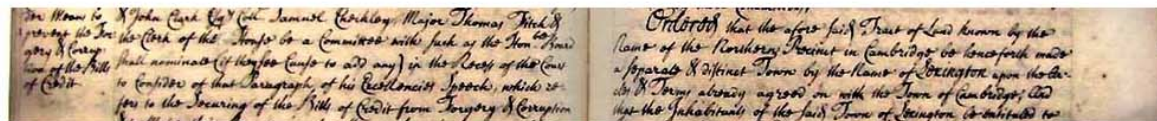 der Means to
prevent the For
gery & Corrup
tion of the Bills
of Credit
& John Clark Esqr Coll Samuel Checkley, Major Thomas Fitch &
the Clerk of the House be a Committee with such as the Honble Board
shall nominate (if they see Cause to add any) in the Recess of the Court
to Consider of that Paragraph, of his Excellencies Speech, which re-
fers to the Securing of the Bills of Credit from Forgery & Corruption
Ordered that the afore said Tract of Land known by the
Name of the Northern Precinct in Cambridge be henceforth made
a separate & distinct Town by the Name of Lexington upon the Ar-
cles & Terms already agreed on with the Town of Cambridge, And
that the Inhabitants of the said Town of Lexington be entituled to